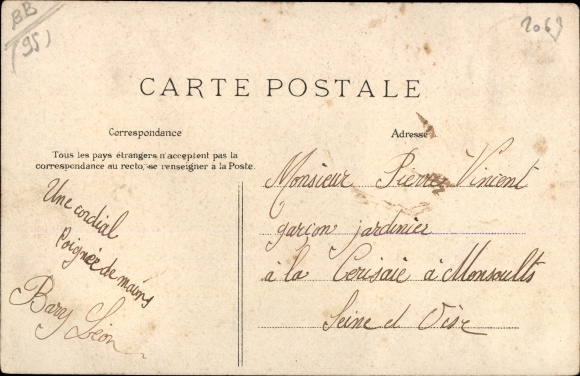 BB
(95)
2069
CARTE POSTALE
Correspondance
Tous les pays étrangers n'acceptent pas la
correspondance au recto, se renseigner à la Poste.
Une cordial
Poignée de mains
Bary Léon
Adresse
Monsieur Pierre Vincent
garçon jardinier
à la Cerisaie à Monsoults
Seine et Oise